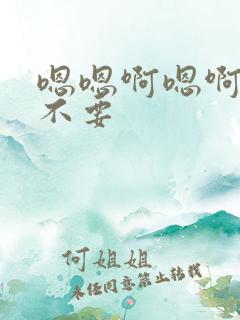 嗯嗯啊嗯啊
不要
何姐姐
未经同意禁止转载